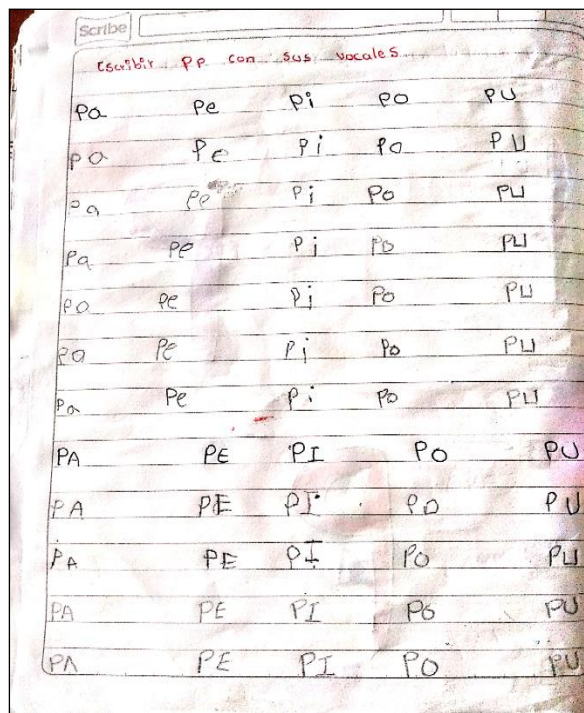 Scribe
Escribir Pp con sus vocales
Pa Pe Pi Po PU
Pa Pe Pi Po PU
Pa Pe Pi Po PU
Pa Pe Pi Po PU
Pa Pe Pi Po PU
Pa Pe Pi Po PU
Pa Pe Pi Po PU
PA PE PI PO PU
PA PE PI PO PU
PA PE PI PO PU
PA PE PI PO PU
PA PE PI PO PU